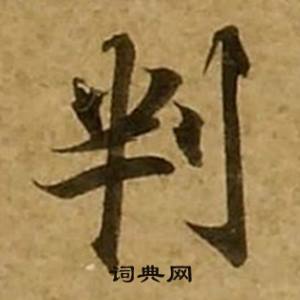 判
词典网